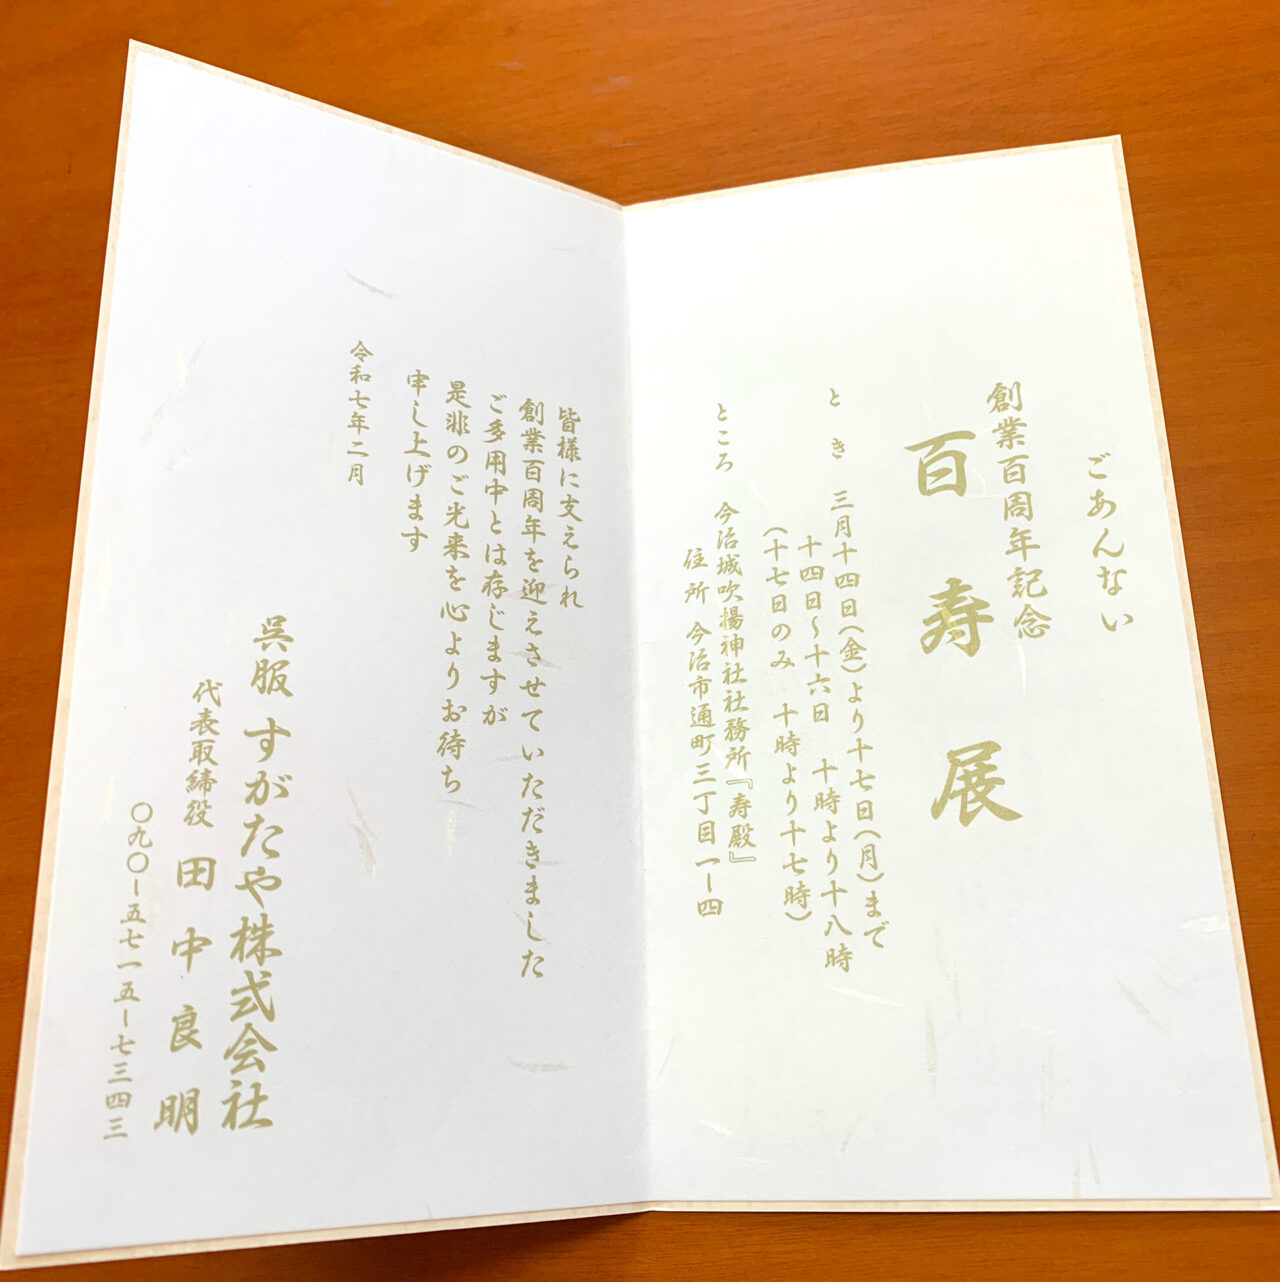 ごあんない
創業百周年記念
百寿展
とき 三月十四日（金）より十七日（月）まで
十四日～十六日 十時より十八時
（十七日のみ 十時より十七時）
ところ 今治城吹揚神社社務所『寿殿』
住所 今治市通町三丁目一ー四
皆様に支えられ
創業百周年を迎えさせていただきました
ご多用中とは存じますが
是非のご光来を心よりお待ち
申し上げます
令和七年二月
呉服 すがたや株式会社
代表取締役 田中良明
〇九〇ー五七一五ー七三四三